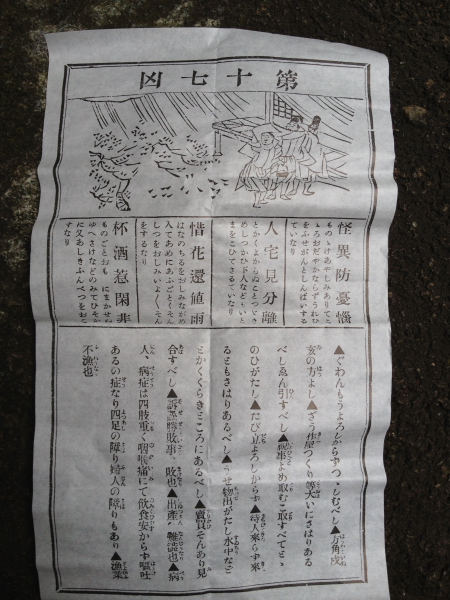 第十七凶
怪異防憂惱
ものゝけあやしみありてこ
ゝろおだやかならずうれひ
をふせがんとしんぱいする
ていなり
人宅見分離
とかくよからぬことついき
めしつかひ下人などりいと
まをこひてさるていなり
惜花還値雨
はなのちるをおしみながめ
入てあめにあふごとくそん
しつをおしみいよ〳〵そん
をするなり
杯酒惹閑非
ものごとおも にまかせね
ゆへさけなどのみてひそか
に又あしきふんべつをお
すなり
▲ぐわんもうよろしからずつゝしむべし▲方角戌
亥の方よし▲ざう作屋つくり等大いにさはりある
べしゑん引すべし▲祝事よめ取むこ取すべてとゝ
のひがたし▲たび立よろしからず▲待人來らず來
るともさはりあるべし▲うせ物出がたし水中など
とかくくらきところにあるべし▲賣買そんあり見
合すべし▲訴訟勝敗事 敗也▲出產 難澁也▲病
人、病症は四肢重く咽喉痛にて飮食安からず嘔吐
あるの症なり四足の障り婦人の障りもあり▲漁業
不漁也